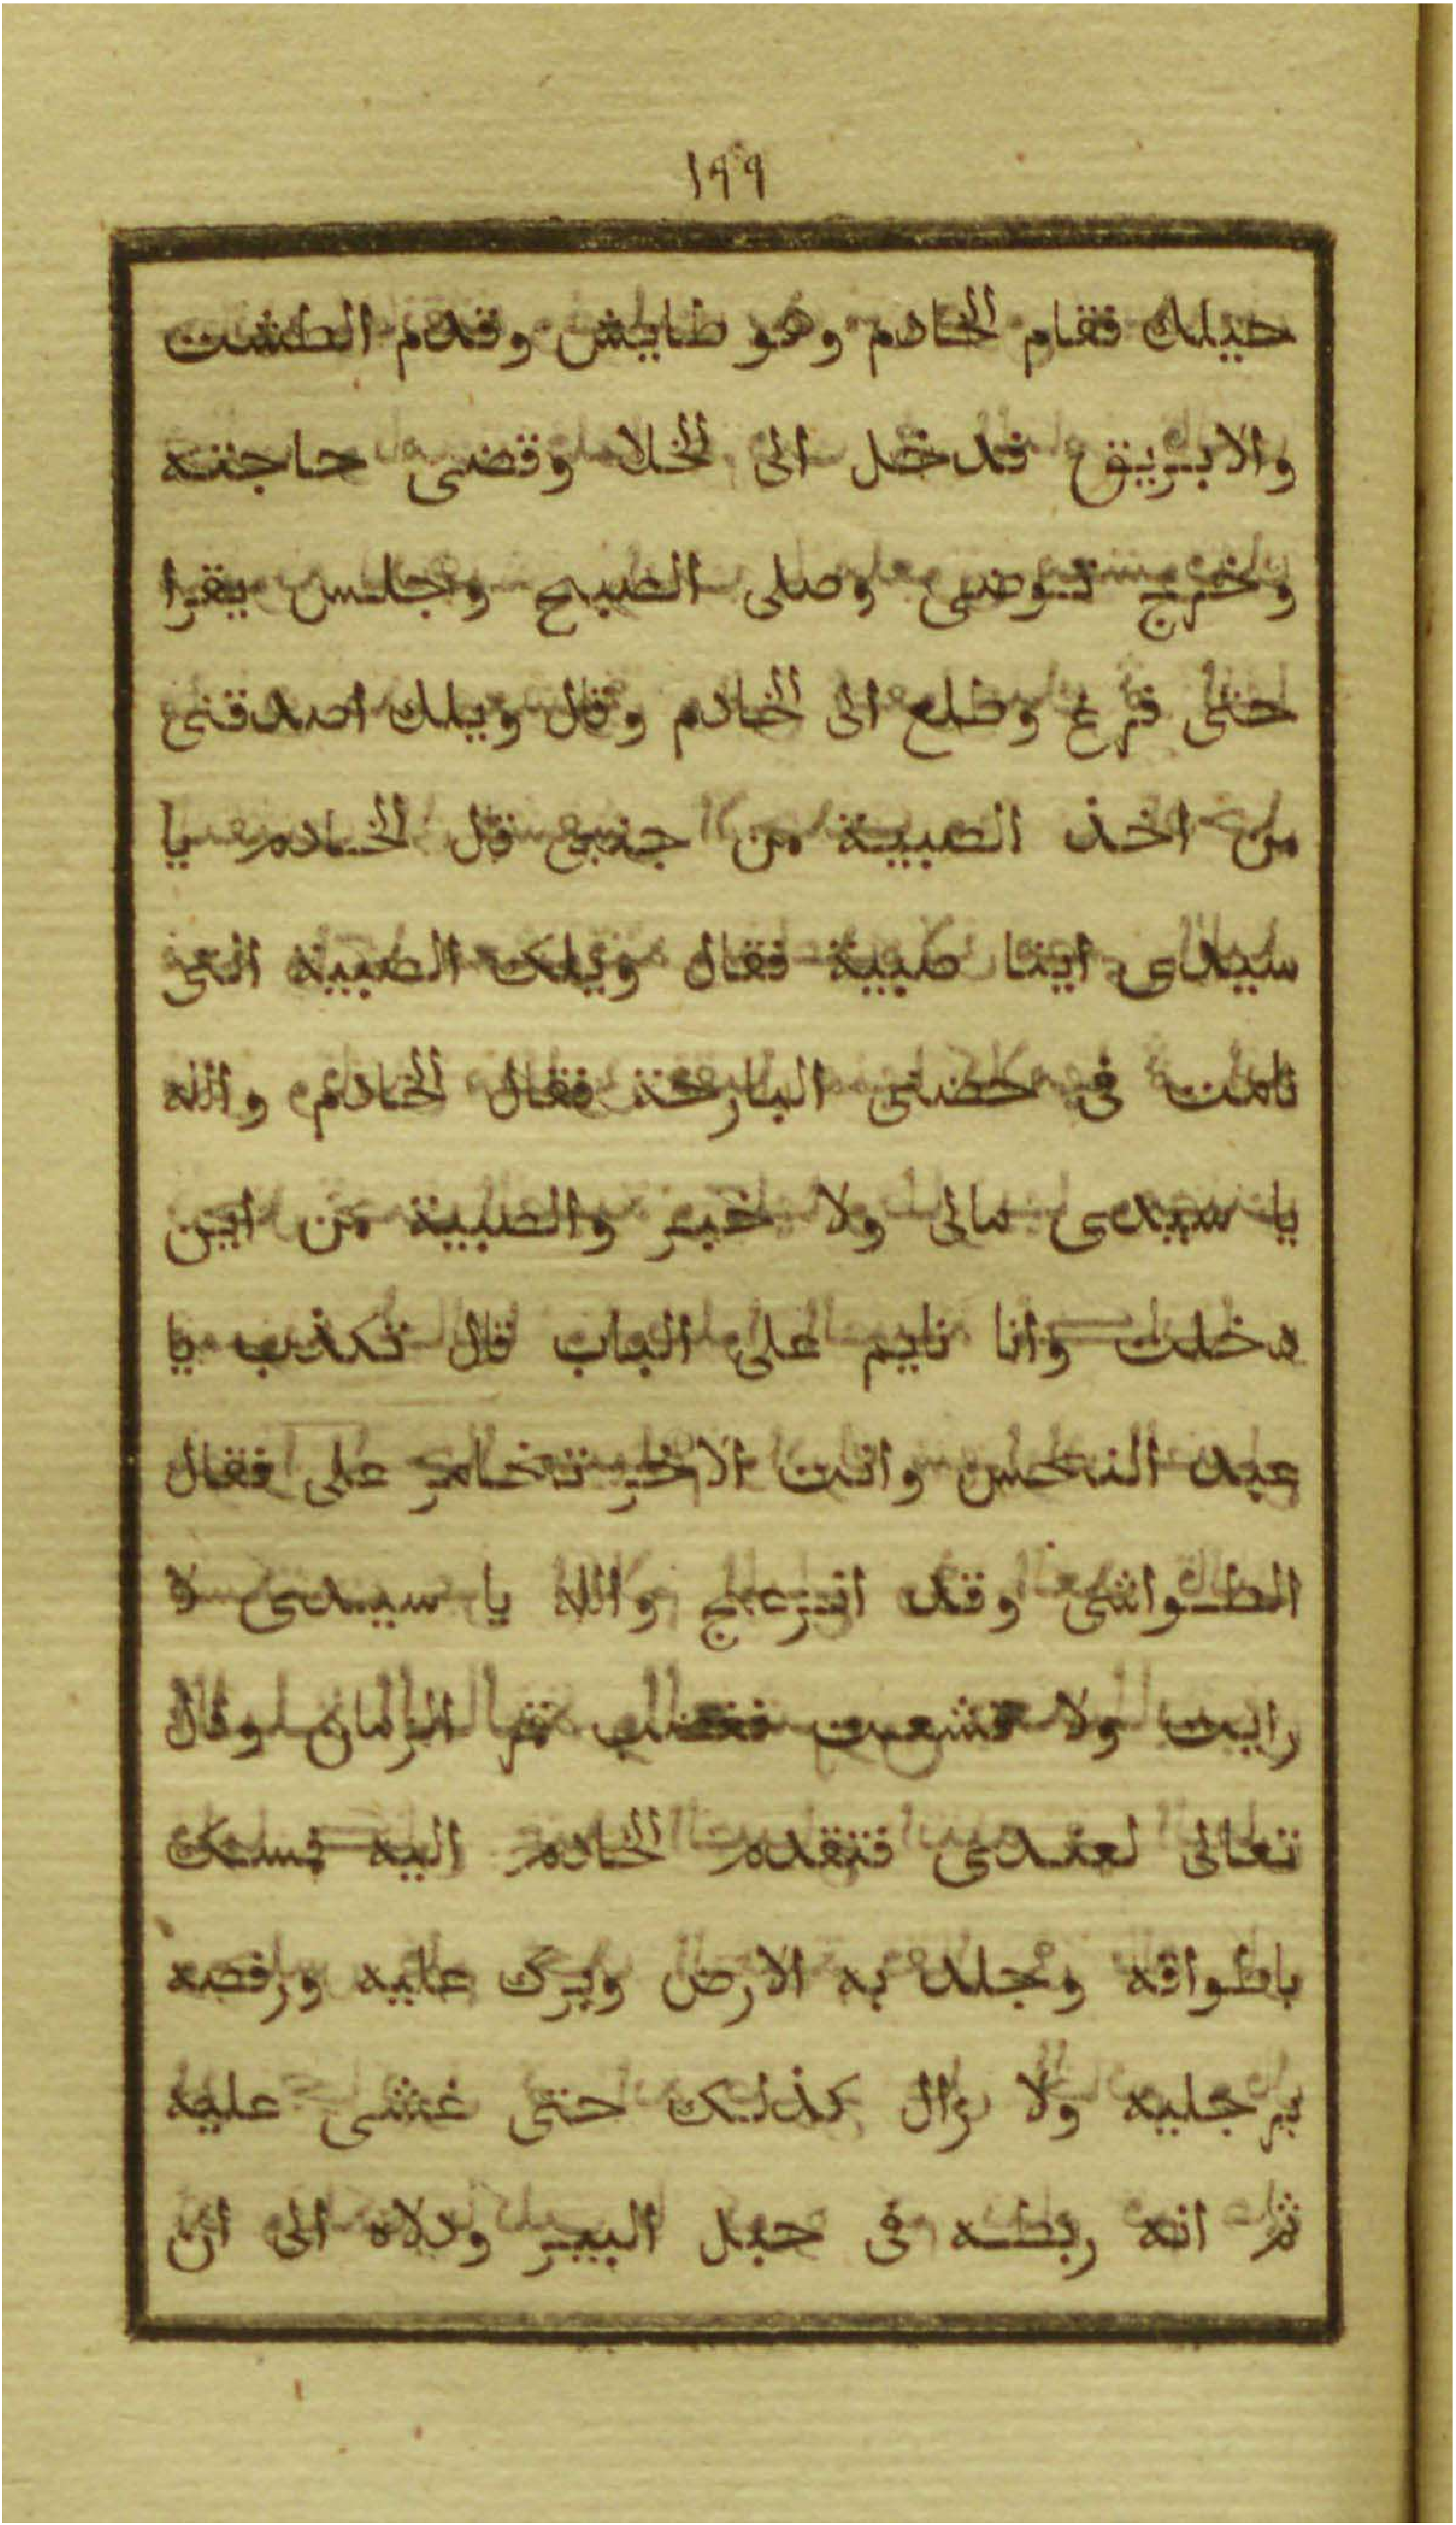 ١٩٩
حيلك فقام الخادم وهو طايش وقدم الطشت
والابريق فدخل الى الخلا وقضى حاجته
وخرج توضى وصلى الصبح وجلس يقرا
حتى فرغ وطلع الى الخادم وقال ويلك اصدقنى
من اخذ الصبية من جنبى قال الخادم يا
سيدى اينا صبية فقال ويلك الصبية التى
نامت فى حضنى البارحة فقال الخادم والله
يا سيدى مالى ولا خبر والصبية من اين
دخلت وانا نايم على الباب قال تكذب يا
عبد النحس وانت الاخر تخامر على فقال
الطواشى وقد انزعج والله يا سيدى لا
رايت ولا قشعت فغضب قمر الزمان وقال
تعالى لعندى فتقدم الخادم اليه فمسك
باطواقه وجلد به الارض وبرك عليه ورفصه
برجليه ولا زال كذلك حتى غشى عليه
ثم انه ربطه فى حبل البير ودلاه الى ان